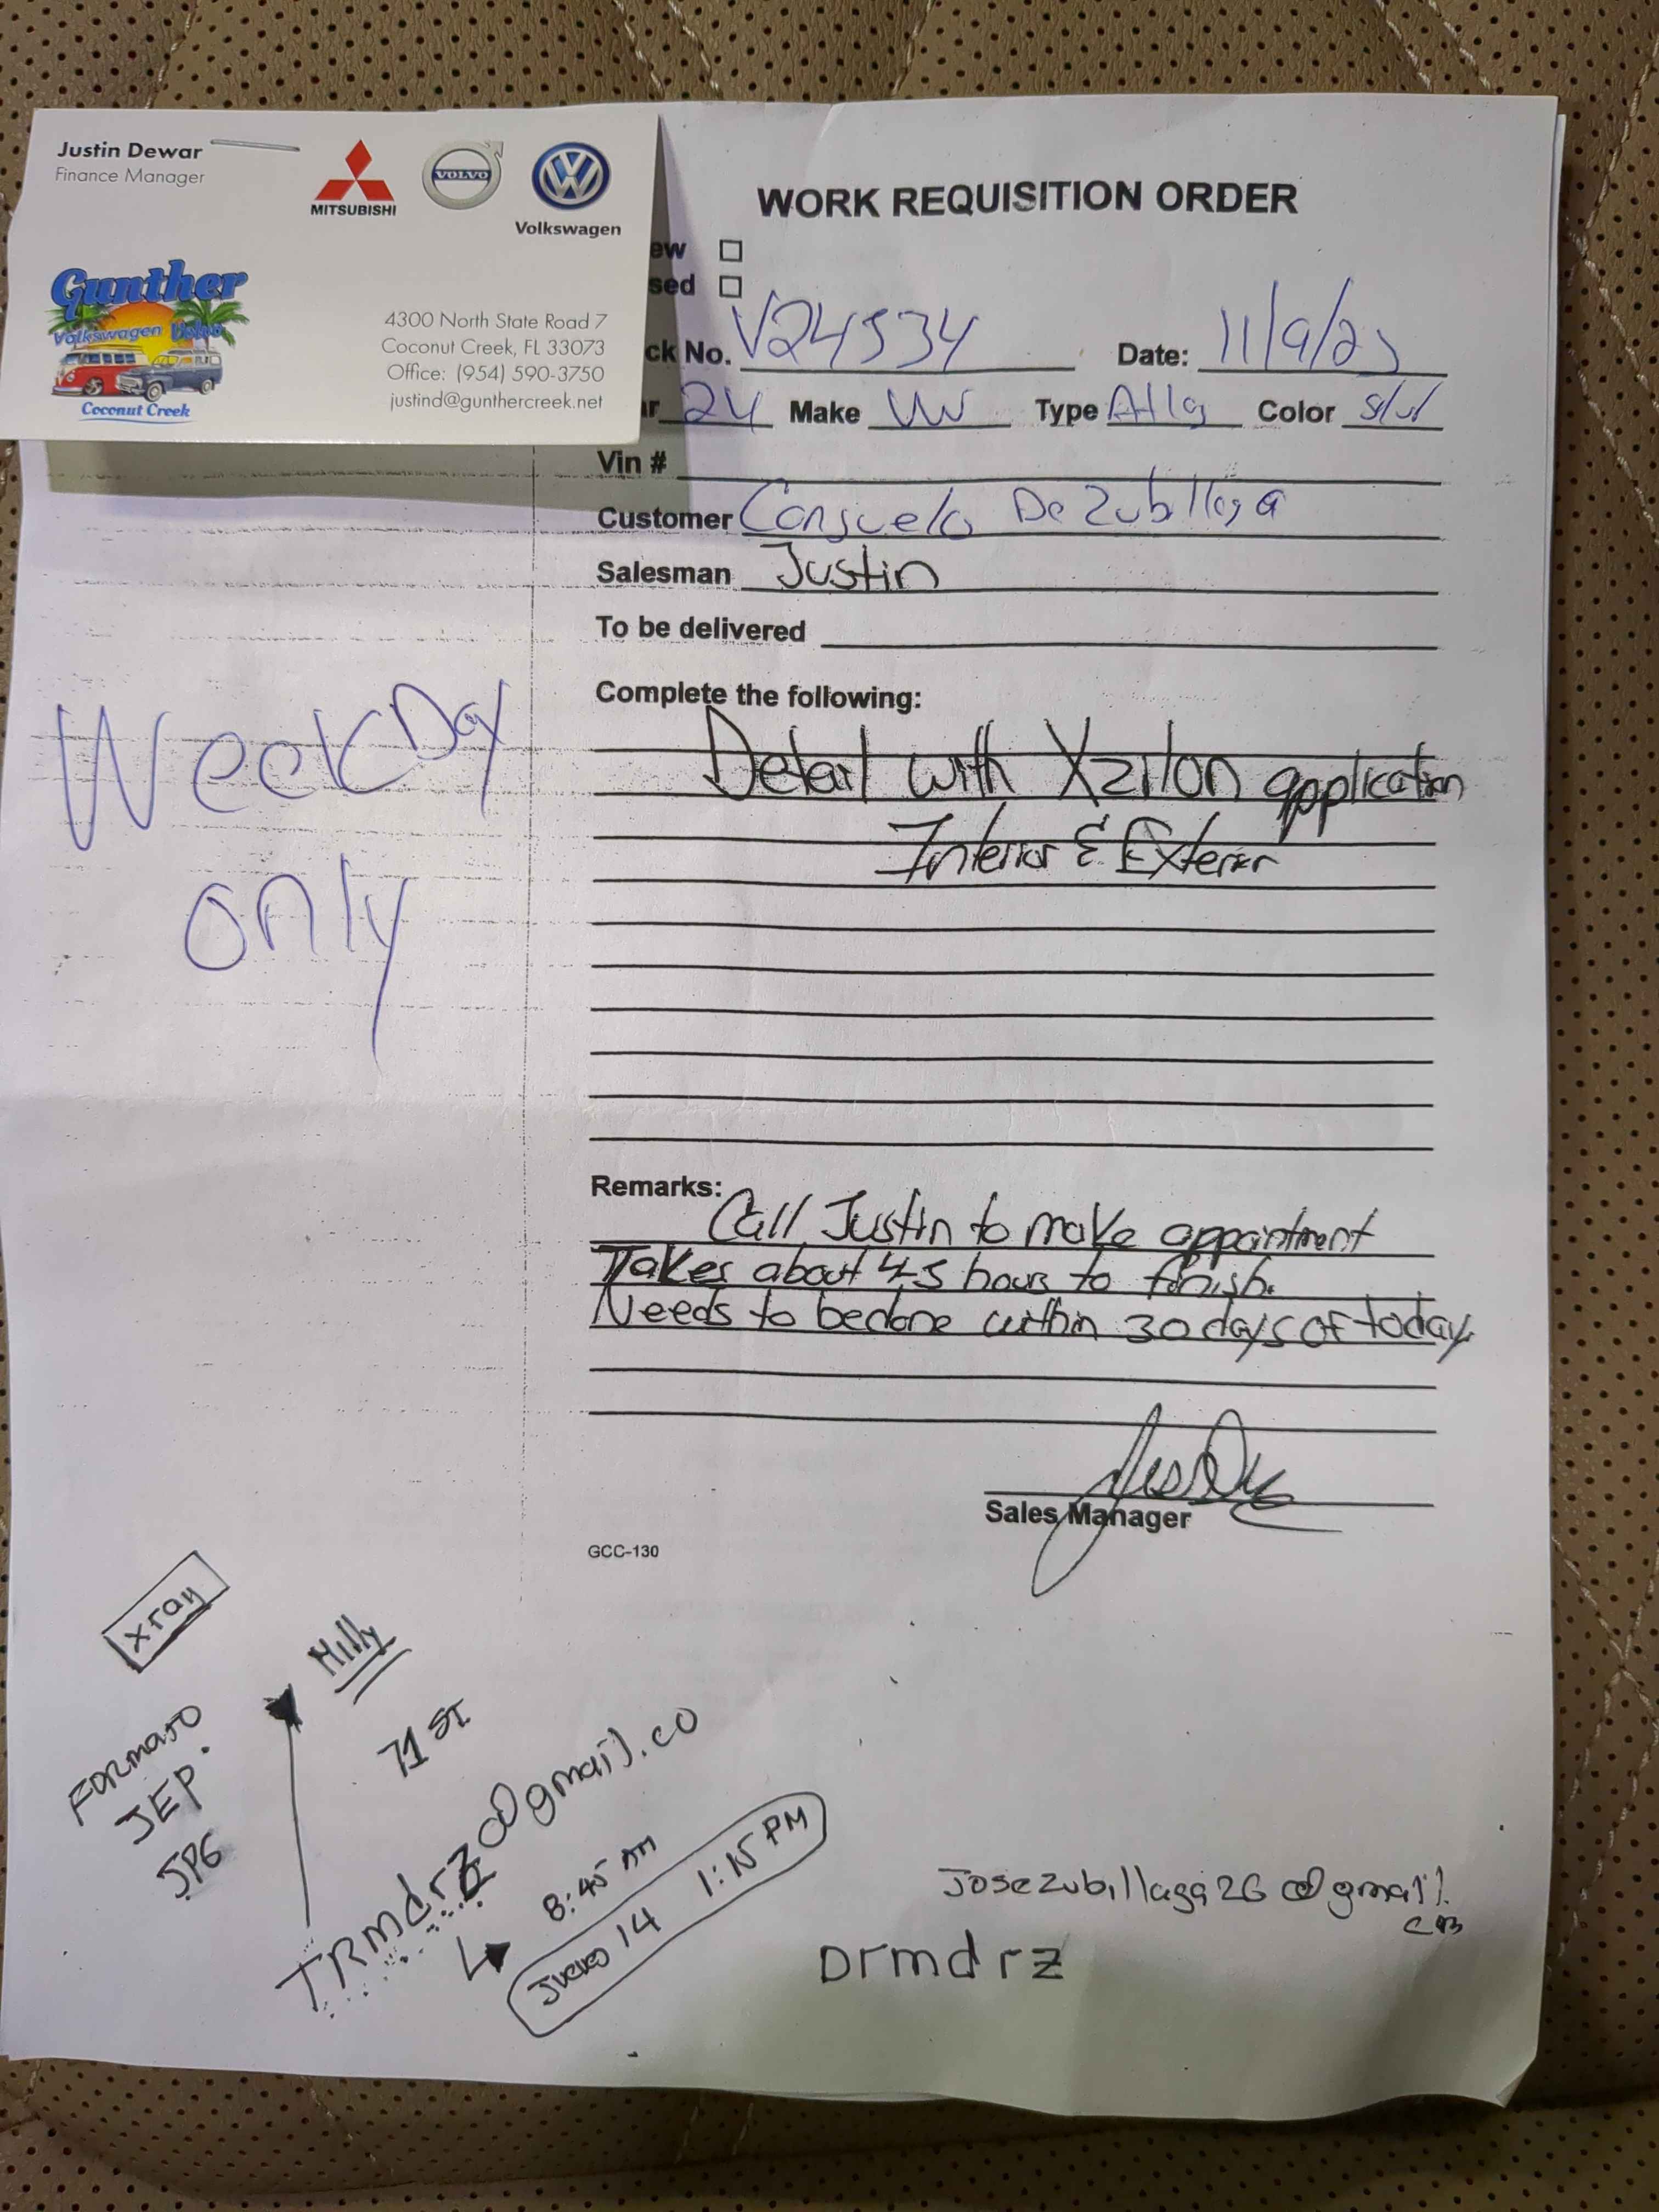 Justin Dewar
Finance Manager
MITSUBISHI
VOLVO
Volkswagen
Gunther
Volkswagen Volvo
Coconut Creek
4300 North State Road 7
Coconut Creek, FL 33073
Office: (954) 590-3750
justind@gunthercreek.net
WORK REQUISITION ORDER
ew
sed
ck No. V24534 Date: 11/9/23
r 24 Make VW Type Atlas Color
Vin #
Customer Consuelo De Zubillaga
Salesman Justin
To be delivered
Complete the following:
Detail with Xzilon application
Interior & Exterior
WeekDay
only
Remarks:
Call Justin to make appointment
Takes about 4-5 hours to finish.
Needs to be done within 30 days of today.
Sales Manager
GCC-130
xray
Milly
71 ST
FORMATO
JEP.
JPG
TRmdrz@gmail.co
8:45 AM
Jueves 14 1:15 PM
Josezubillaga26@gmail.
com
Drmdrz